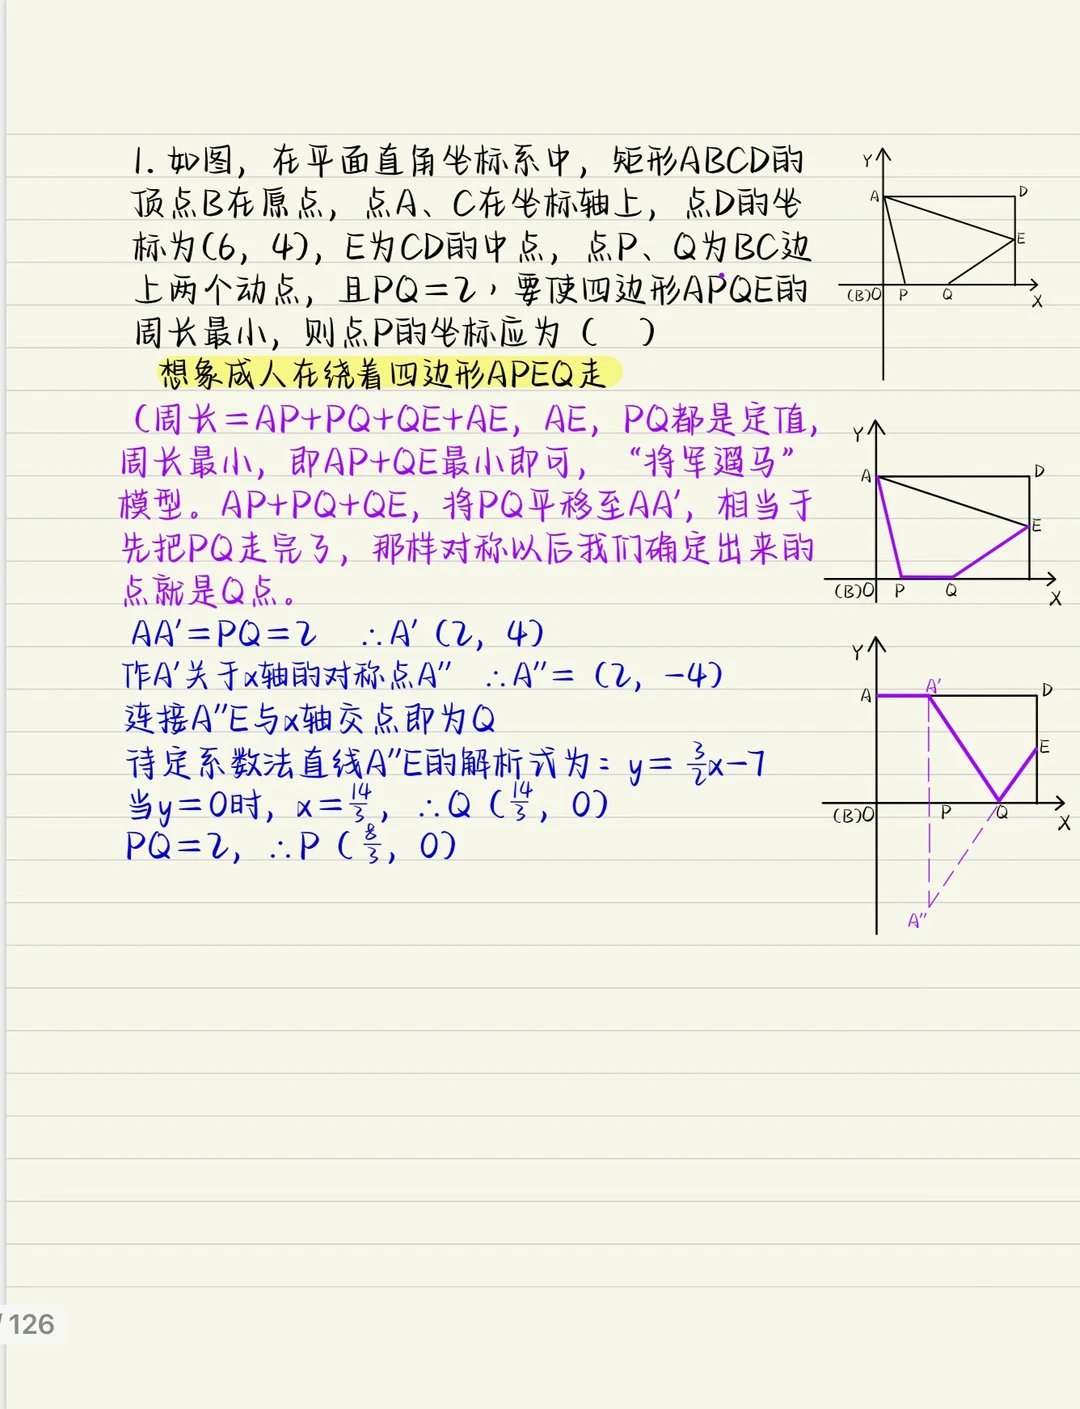 1. 如图，在平面直角坐标系中，矩形ABCD的
顶点B在原点，点A、C在坐标轴上，点D的坐
标为(6，4)，E为CD的中点，点P、Q为BC边
上两个动点，且PQ=2，要使四边形APQE的
周长最小，则点P的坐标应为（ ）
想象成人在绕着四边形APEQ走
（周长=AP+PQ+QE+AE，AE，PQ都是定值，
周长最小，即AP+QE最小即可，“将军遛马”
模型。AP+PQ+QE，将PQ平移至AA′，相当于
先把PQ走完了，那样对称以后我们确定出来的
点就是Q点。
AA′=PQ=2 ∴A′（2，4）
作A′关于x轴的对称点A″ ∴A″=（2，-4）
连接A″E与x轴交点即为Q
待定系数法直线A″E的解析式为：y=3/2x-7
当y=0时，x=14/3，∴Q（14/3，0）
PQ=2，∴P（8/3，0）
Y
A
D
E
(B)O
P
Q
X
Y
A
D
E
(B)O
P
Q
X
Y
A
A′
D
E
(B)O
P
Q
X
A″
/126